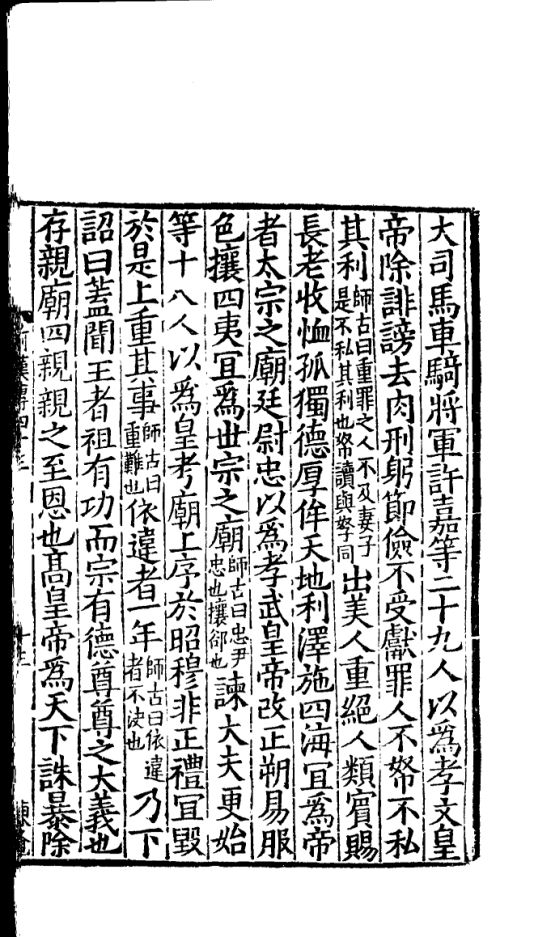 大司馬車騎將軍許嘉等二十九人以爲孝文皇
帝除誹謗去肉刑躬節儉不受獻罪人不帑不私
其利師古曰重罪之人不及妻子是不私其利也帑讀與孥同出美人重絕人類賓賜
長老收恤孤獨德厚侔天地利澤施四海宜爲帝
者太宗之廟廷尉忠以爲孝武皇帝改正朔易服
色攘四夷宜爲世宗之廟師古曰忠尹忠也攘郤也諫大夫更始
等十八人以爲皇考廟上序於昭穆非正禮宜毀
於是上重其事師古曰重難也依違者一年師古曰依違者不決也乃下
詔曰蓋聞王者祖有功而宗有德尊尊之大義也
存親廟四親親之至恩也髙皇帝爲天下誅暴除
前漢傳四十三
十三